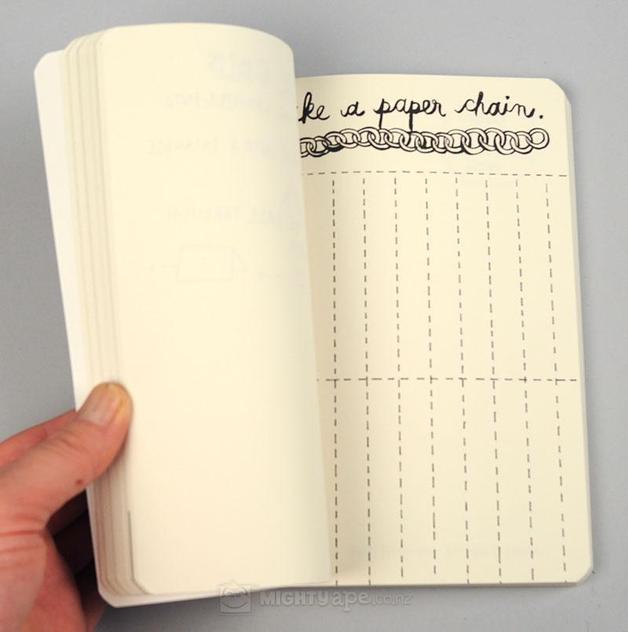 ke a paper chain.
MIGHTY APE.co.nz